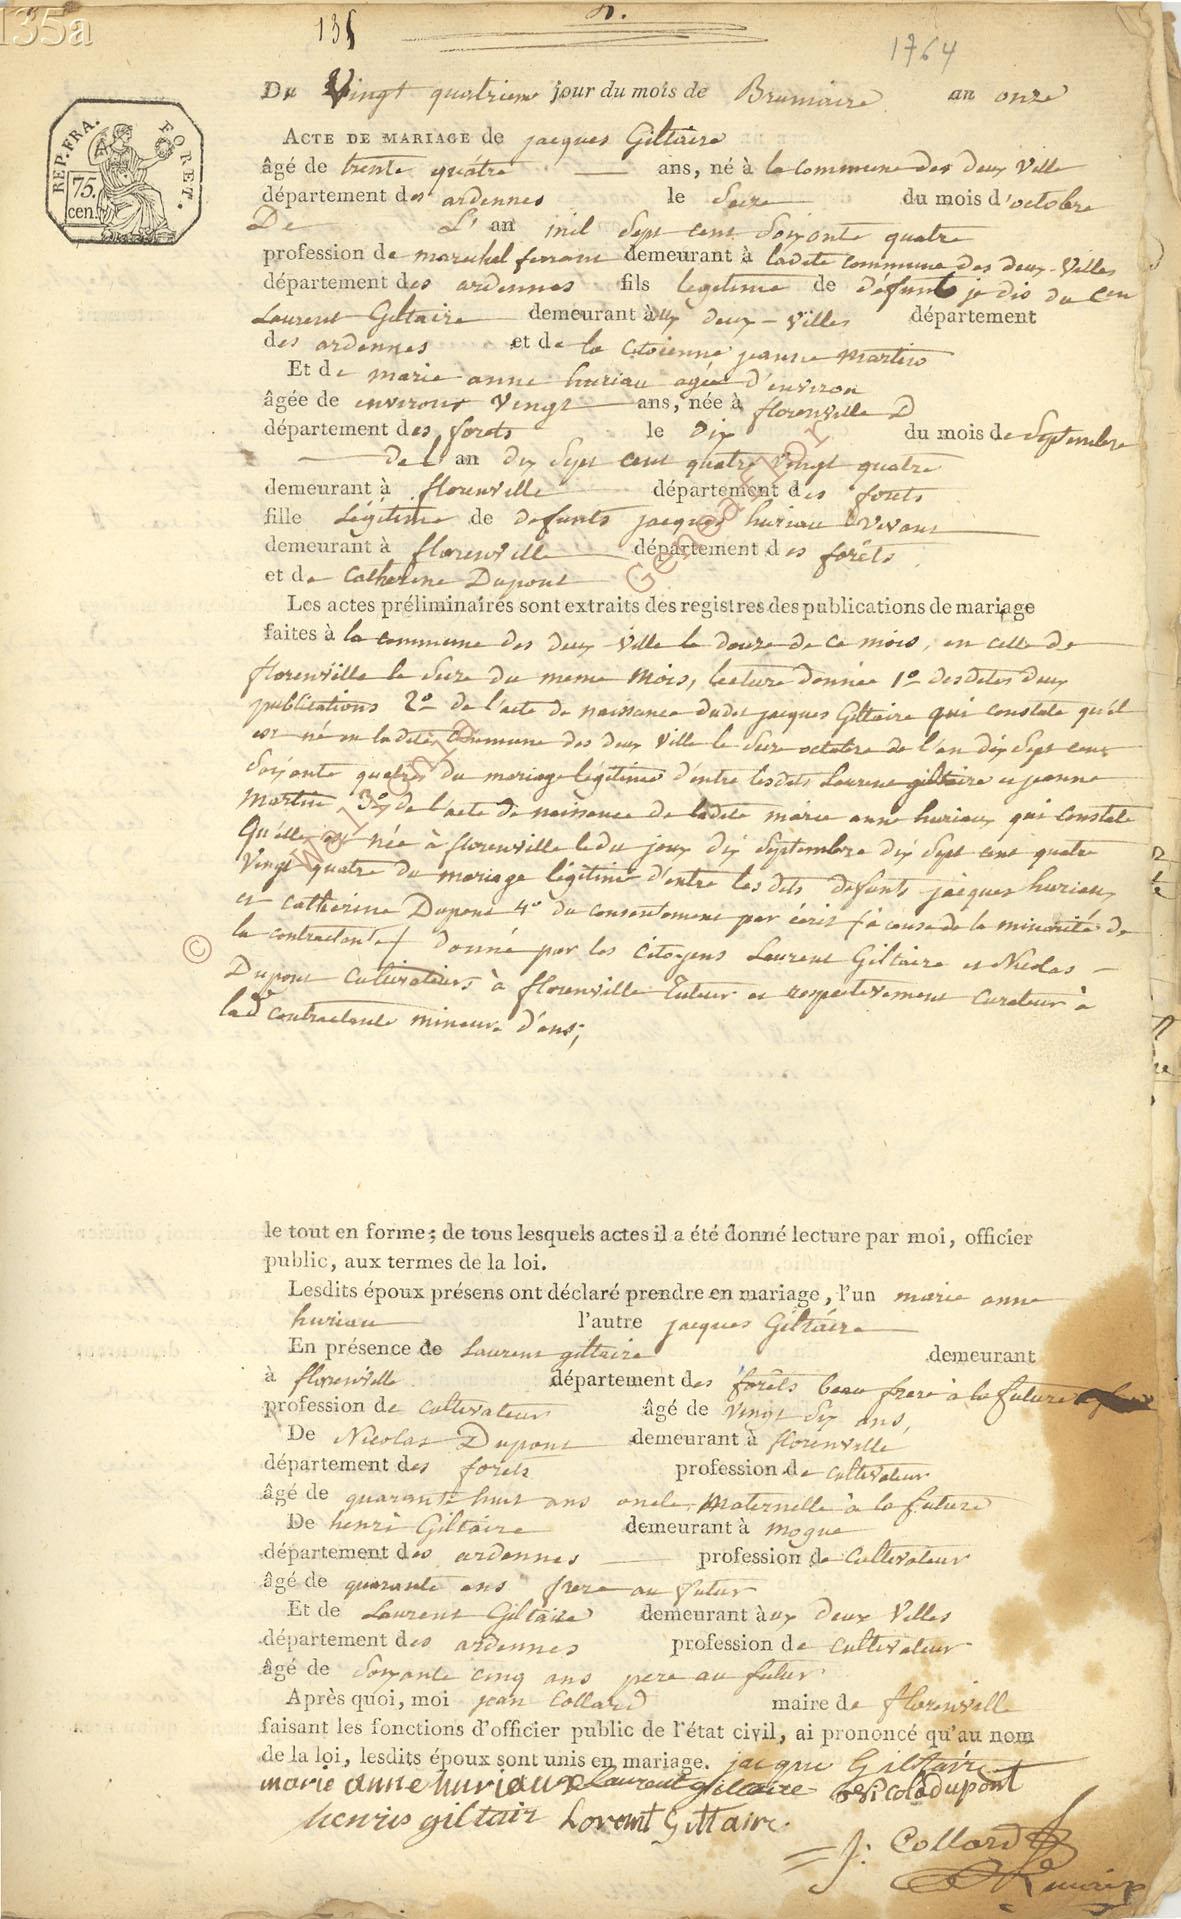 135a
135
n.
1764
REP. FRA. FORET.
75. cen.
Du Vingt quatrieme jour du mois de Brumaire an onze
ACTE DE MARIAGE de jacques Giltaire
âgé de trente quatre ans, né à la commune des deux Ville
département des ardennes le Seize du mois d'octobre
De L' an mil Sept cent Soixante quatre
profession de marechal ferrant demeurant à ladite commune des deux-Villes
département des ardennes fils legitime de défunt je dis du Cen
Laurent Giltaire demeurant aux deux-Villes département
des ardennes et de la Citoienne jeanne Martin
Et de marie anne huriau agée d'environ
âgée de environ Vingt ans, née à florenville D
département des forets le Dix du mois de Septembre
de l' an dix Sept cent quatre Vingt quatre
demeurant à florenville département des forets
fille Légitime de defunts jacques huriau Vivant
demeurant à florenville département des forêts
et de Catherine Dupont
Les actes préliminaires sont extraits des registres des publications de mariage
faites à la commune des deux Ville le douze de ce mois, en celle de
florenville le Seize du meme Mois, lecture donnée 1° desdites deux
publications 2° de l'acte de naissance dudit jacques Giltaire qui constate qu'il
est né en ladite Commune des deux Ville le Seize octobre de l'an dix Sept cent
Soixante quatre du mariage légitime d'entre lesdits Laurent giltaire et jeanne
Martin 3° de l'acte de naissance de ladite marie anne huriaux qui constate
Qu'elle est née à florenville ledit jour dix Septembre dix Sept cent quatre
Vingt quatre du mariage légitime d'entre les dits defunts jacques huriaux
et catherine Dupont 4° du consentement par écrit (à cause de la minorité de
la contractante) donné par les citoyens Laurent Giltaire et Nicolas
Dupont Cultivateurs à florenville Tuteur et respectivement Curateur à
lad contractante mineure d'ans;
© Geneanet
le tout en forme; de tous lesquels actes il a été donné lecture par moi, officier
public, aux termes de la loi.
Lesdits époux présens ont déclaré prendre en mariage, l'un marie anne
huriau l'autre jacques Giltaire
En présence de Laurent giltaire demeurant
à florenville département des forêts beau frere à la future
profession de cultivateur âgé de Vingt Six ans,
De Nicolas Dupont demeurant à florenville
département des forets profession de cultivateur
âgé de quarante huit ans oncle Maternelle à la future
De henri Giltaire demeurant à mogue
département des ardennes profession de Cultivateur
âgé de quarante ans frere au futur
Et de Laurent Giltaire demeurant aux deux Villes
département des ardennes profession de cultivateur
âgé de Soixante cinq ans pere au futur
Après quoi, moi jean Collard maire de florenville
faisant les fonctions d'officier public de l'état civil, ai prononcé qu'au nom
de la loi, lesdits époux sont unis en mariage. jacque Giltair
marie anne huriaux Laurent giltaire nicola dupont
henris giltair Lorent Giltaire
J: Collard